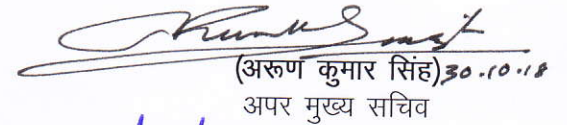 (अरूण कुमार सिंह) 30.10.18
अपर मुख्य सचिव